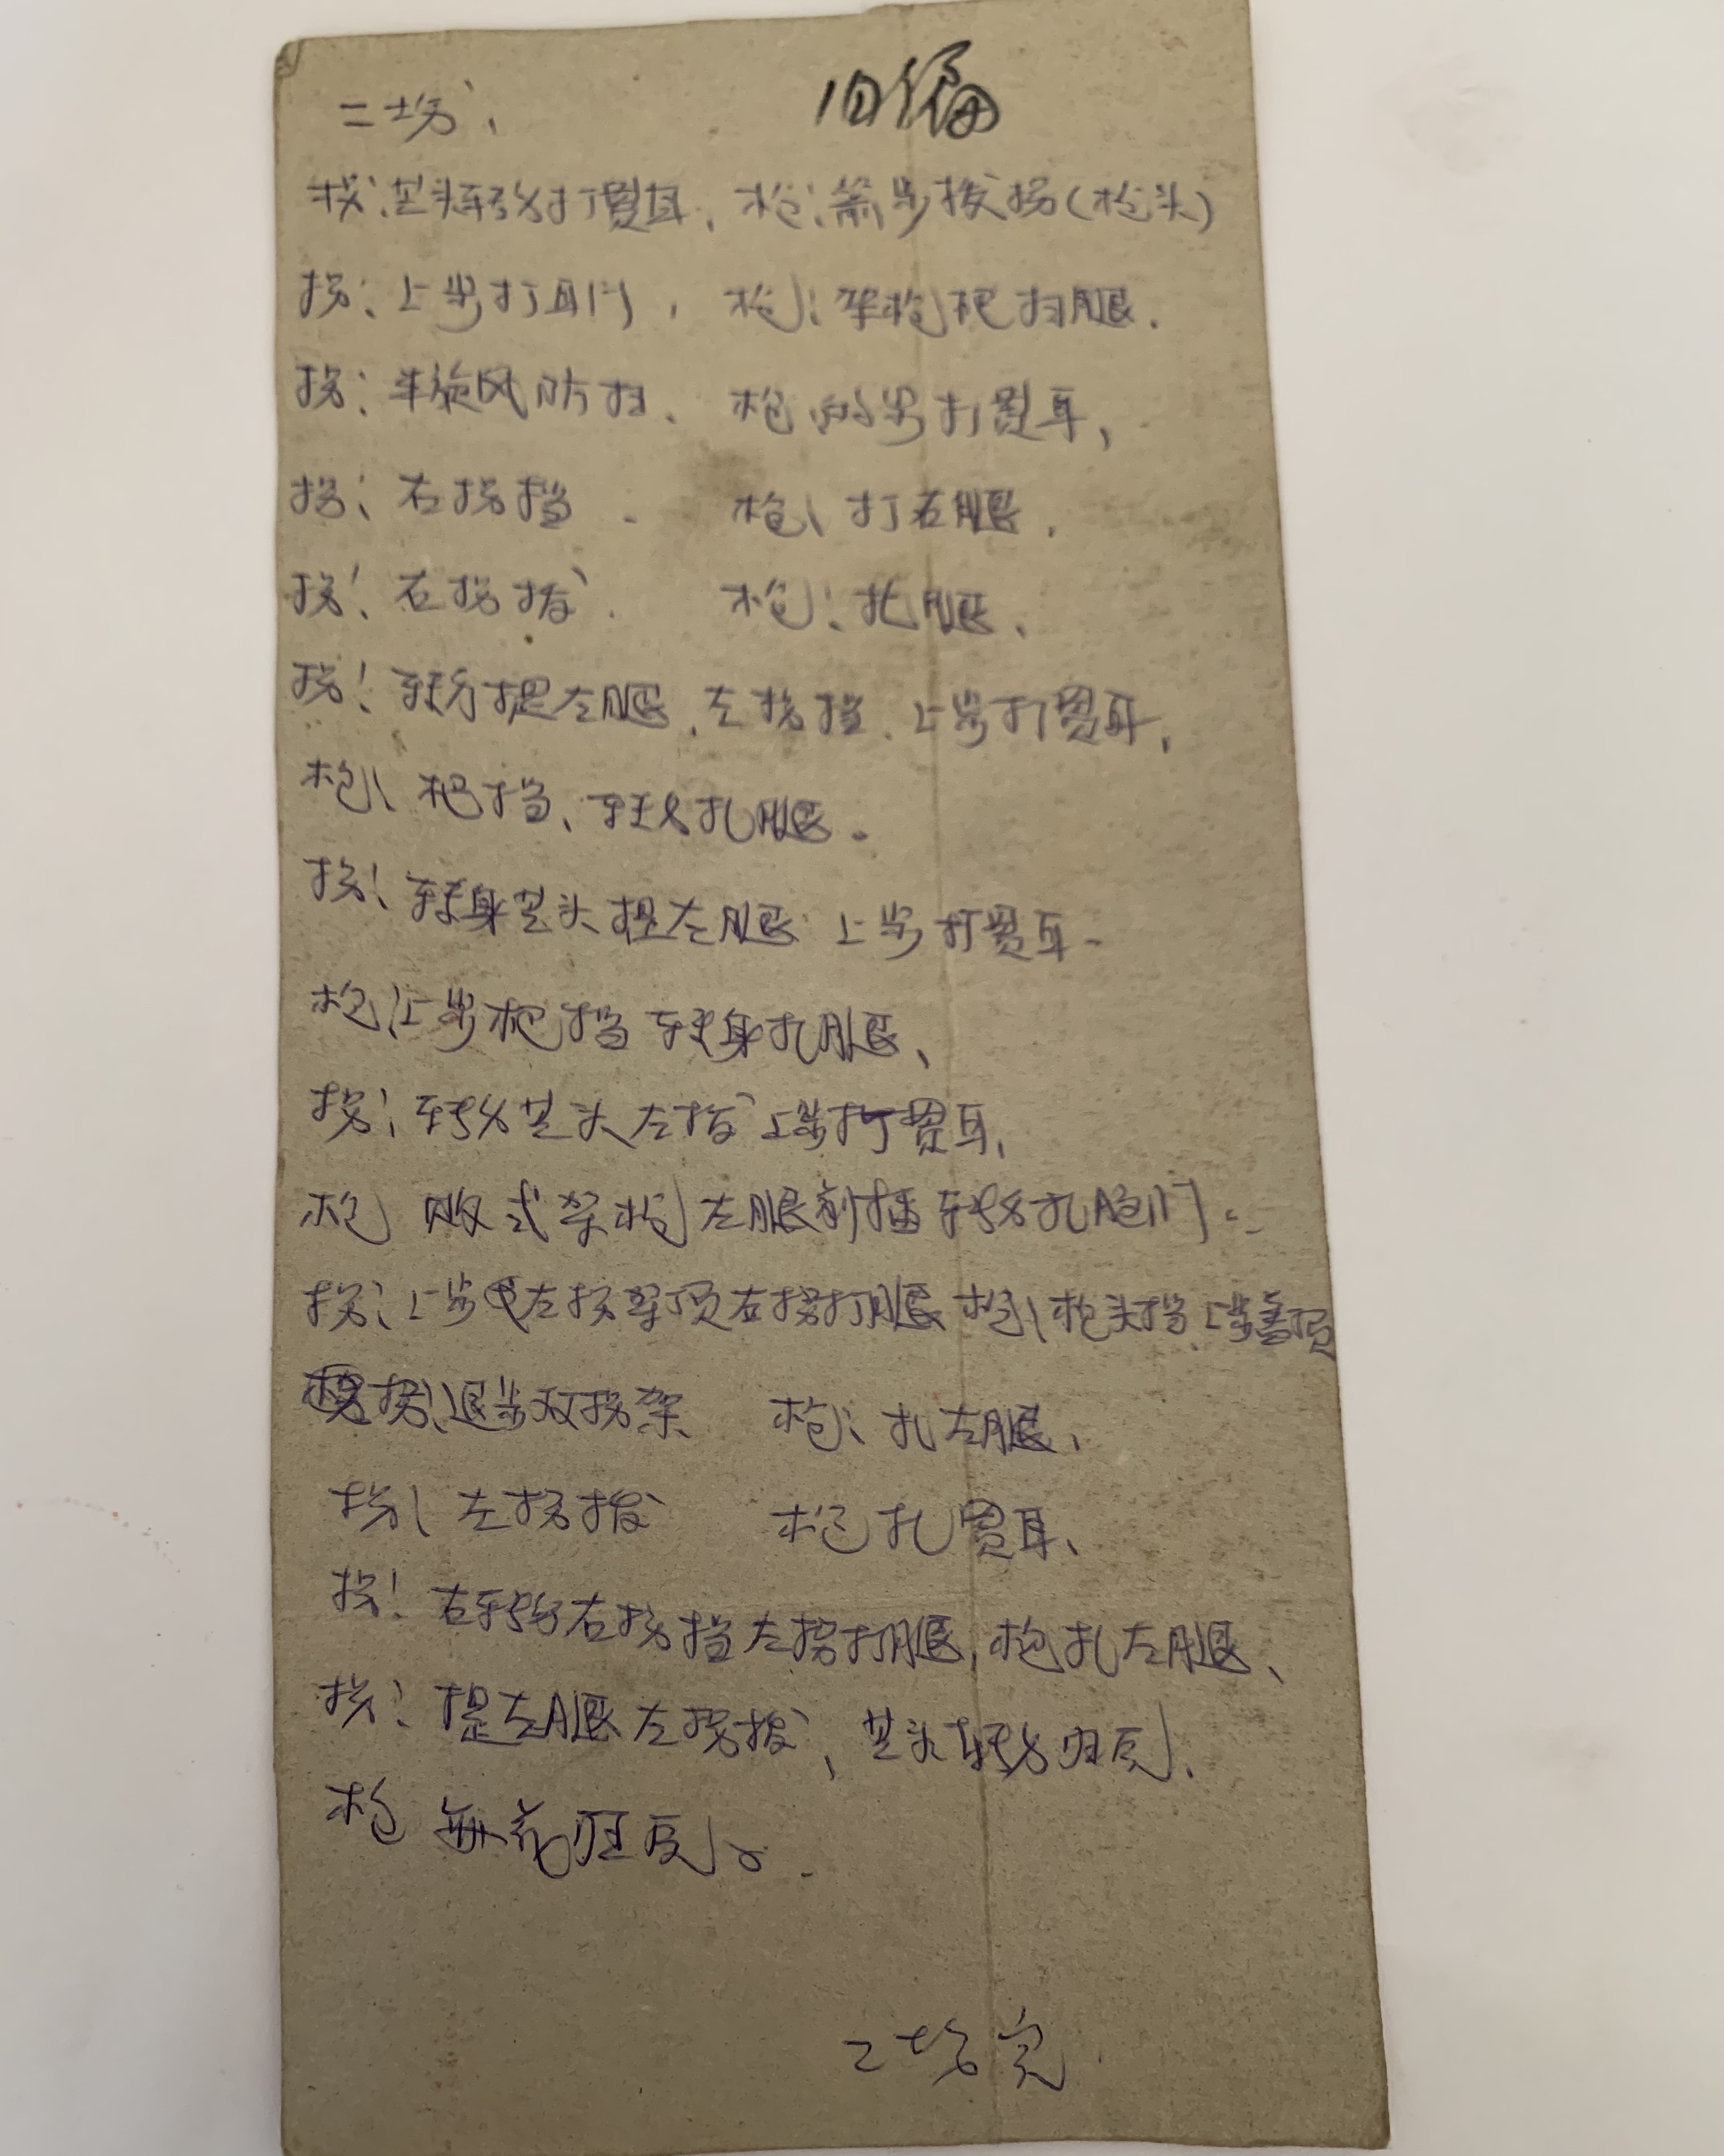 二场、 旧编
拐：盖头转身打贯耳，枪：箭步拨拐（枪头）
拐：上步打耳门，枪：架枪把扫腿.
拐：半旋风防扫. 枪 步打贯耳，
拐：右拐挡. 枪：打右腿.
拐：右拐拨. 枪：扎腿、
拐：转身提左腿、左拐挡、上步打贯耳，
枪：把挡、转身扎腿。
拐：转身盖头提左腿 上步打贯耳-
枪：上步把挡 转身扎腿、
拐：转身盖头左拨上步打贯耳，
枪 败式架枪左腿前插转身扎 门。
拐：上步 左拐架顶右拐打腿 枪：枪头挡、上步盖顶
拐：退步双拐架 枪：扎左腿，
拐：左拐拨 枪 扎贯耳、
拐：右转身右拐挡左拐打腿，枪扎左腿、
拐：提左腿左拐拨、盖头转身归原.
枪 舞花归原。
二场完.